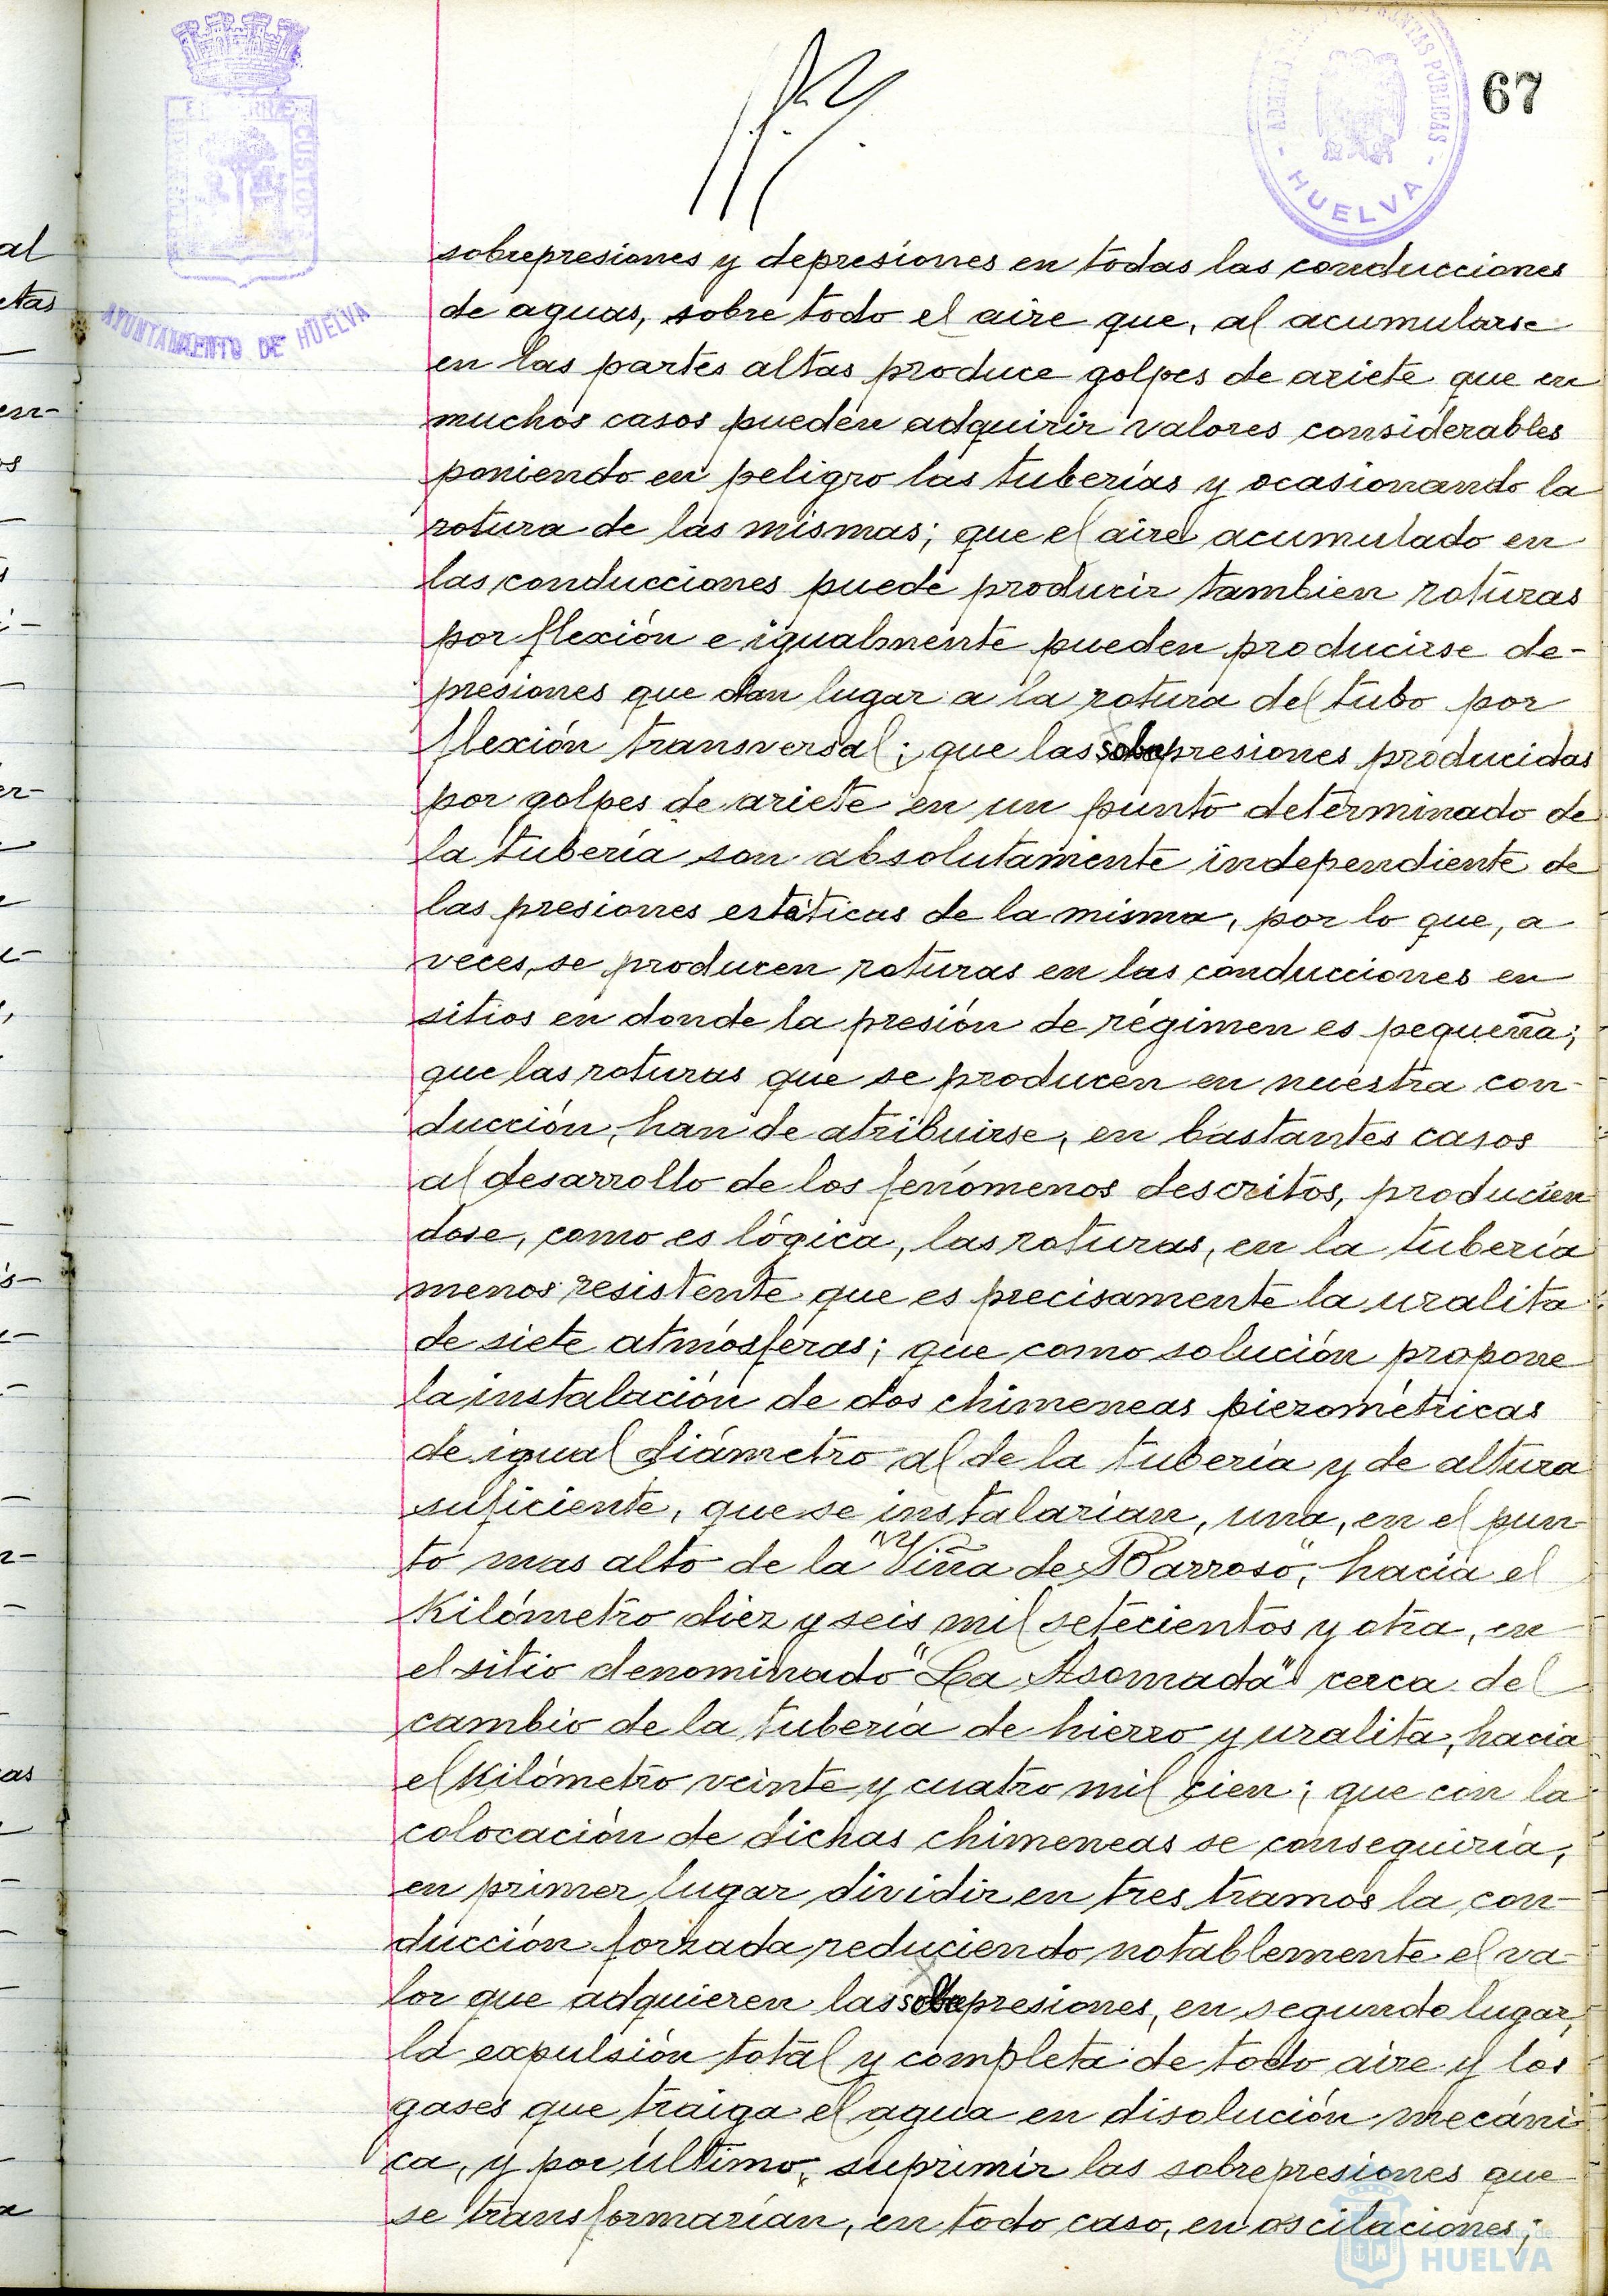 67
HUELVA
AYUNTAMIENTO DE HUELVA
sobrepresiones y depresiones en todas las conducciones
de aguas, sobre todo el aire que, al acumularse
en las partes altas produce golpes de ariete que en
muchos casos pueden adquirir valores considerables
poniendo en peligro las tuberías y ocasionando la
rotura de las mismas; que el aire acumulado en
las conducciones puede producir tambien roturas
por flexión e igualmente pueden producirse de-
presiones que dan lugar a la rotura del tubo por
flexión transversal; que las sobrepresiones producidas
por golpes de ariete en un punto determinado de
la tubería son absolutamente independiente de
las presiones estáticas de la misma, por lo que, a
veces, se producen roturas en las conducciones en
sitios en donde la presión de régimen es pequeña;
que las roturas que se producen en nuestra con-
ducción, han de atribuirse, en bastantes casos
al desarrollo de los fenómenos descritos, producien
dose, como es lógica, las roturas, en la tubería
menos resistente que es precisamente la uralita
de siete atmósferas; que como solución propone
la instalación de dos chimeneas piezométricas
de igual diámetro al de la tubería y de altura
suficiente, que se instalarían, una, en el pun-
to mas alto de la "Viña de Barroso", hacia el
Kilómetro diez y seis mil setecientos y otra, en
el sitio denominado "La Asomada" cerca del
cambio de la tubería de hierro y uralita, hacia
el Kilómetro veinte y cuatro mil cien; que con la
colocación de dichas chimeneas se conseguiría,
en primer lugar dividir en tres tramos la con-
ducción forzada reduciendo notablemente el va-
lor que adquieren las sobrepresiones, en segundo lugar,
la expulsión total y completa de todo aire y los
gases que traiga el agua en disolución mecáni
ca, y por último, suprimir las sobrepresiones que
se transformarían, en todo caso, en oscilaciones;
HUELVA